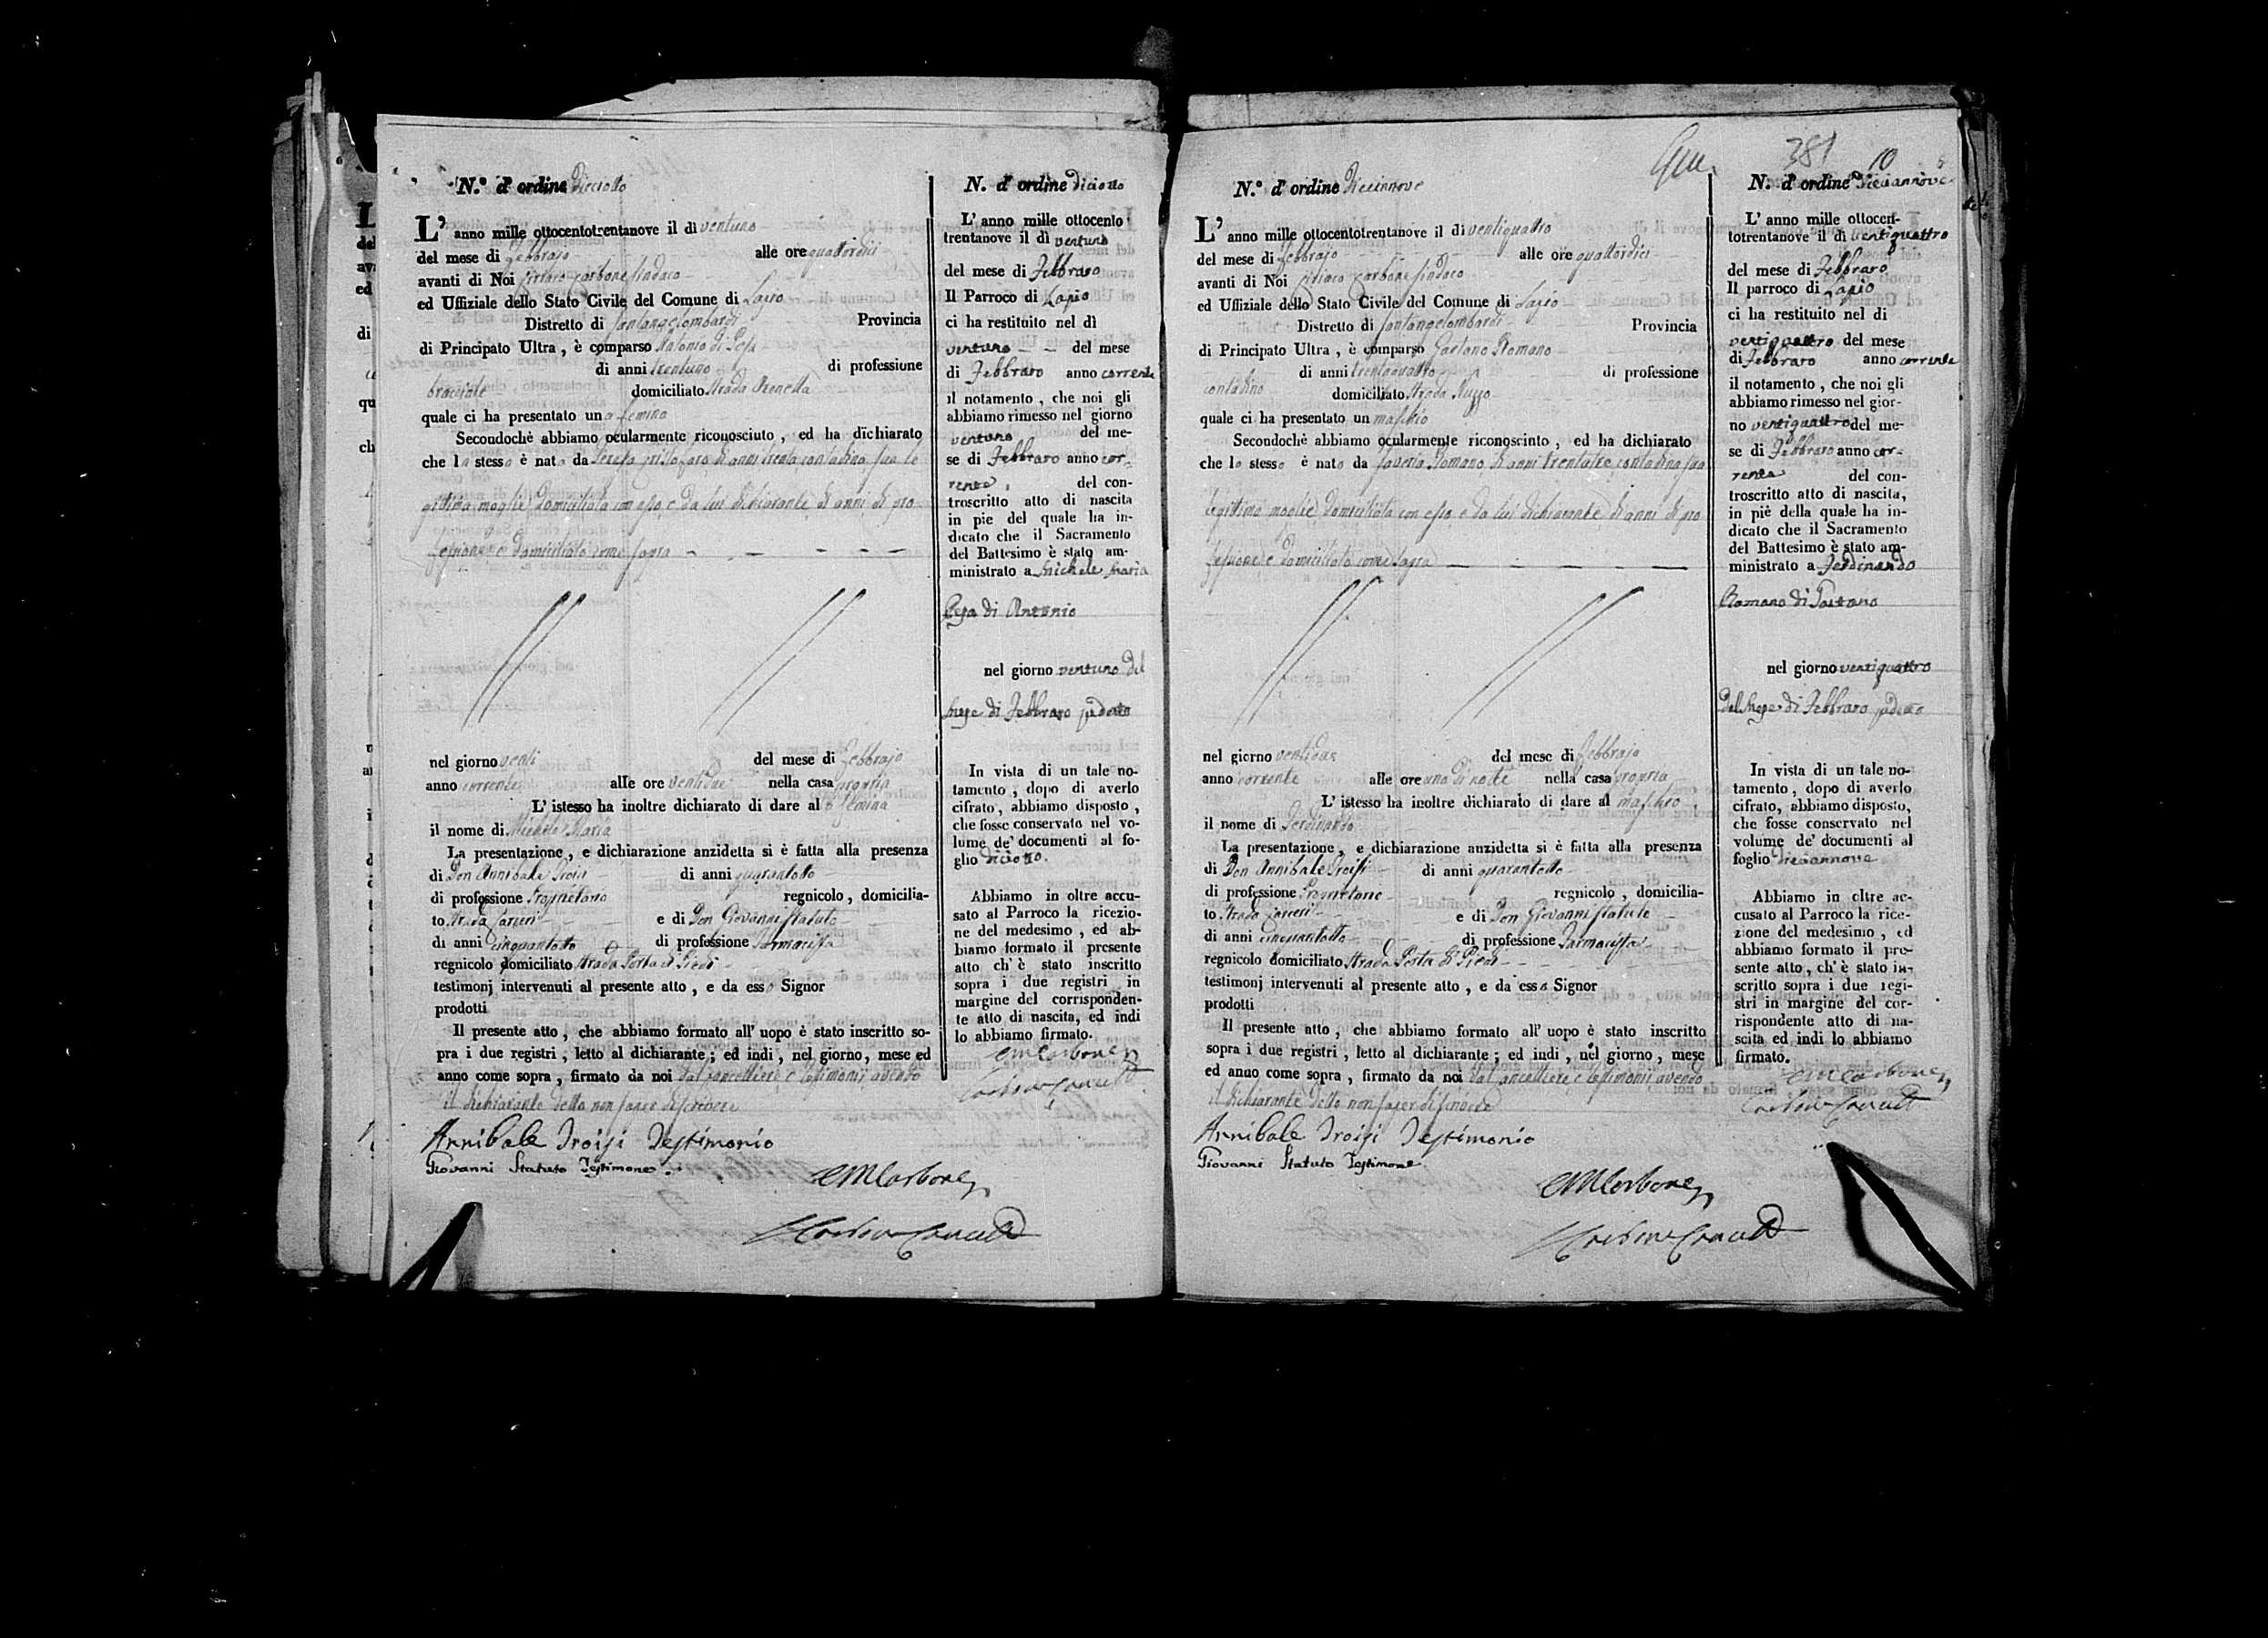 N.º d' ordine Dieciotto
L' anno mille ottocentotrentanove il dì ventuno
del mese di Febbrajo alle ore quattordici
avanti di Noi Ciriaco Carbone Sindaco
ed Uffiziale dello Stato Civile del Comune di Lapio
Distretto di Santangelombardi Provincia
di Principato Ultra, è comparso Antonio di
di anni trentuno di professione
bracciale domiciliato Strada
quale ci ha presentato una femina
Secondochè abbiamo ocularmente riconosciuto, ed ha dichiarato
che la stessa è nata da Teresa Cristofaro di anni trenta contadina sua le
gittima moglie domiciliata con esso e da lui dichiarante di anni di pro
fessione e domiciliato come sopra
nel giorno venti del mese di Febbrajo
anno corrente alle ore ventidue nella casa propria
L' istesso ha inoltre dichiarato di dare al a femina
il nome di Michele Maria
La presentazione, e dichiarazione anzidetta si è fatta alla presenza
di Don Annibale Troisi di anni quarantotto
di professione Proprietario regnicolo, domicilia-
to Strada Carceri e di Don Giovanni Statuto
di anni cinquantotto di professione Farmacista
regnicolo domiciliato Strada Porta di Piedi
testimonj intervenuti al presente atto, e da esso Signor
prodotti
Il presente atto, che abbiamo formato all' uopo è stato inscritto so-
pra i due registri, letto al dichiarante; ed indi, nel giorno, mese ed
anno come sopra, firmato da noi dal Cancelliere, e testimonii avendo
il dichiarante detto non saper di scrivere
Annibale Troisi Testimonio
Giovanni Statuto Testimone
CMCarbone
Carbone Cancell
N. d' ordine diciotto
L' anno mille ottocento
trentanove il dì ventuno
del mese di Febbraro
Il Parroco di Lapio
ci ha restituito nel dì
ventuno del mese
di Febbraro anno corrente
il notamento, che noi gli
abbiamo rimesso nel giorno
ventuno del me-
se di Febbraro anno cor-
rente, del con-
troscritto atto di nascita
in pie del quale ha in-
dicato che il Sacramento
del Battesimo è stato am-
ministrato a Michele Maria
di Antonio
nel giorno ventuno del
Mese di Febbraro sudetto
In vista di un tale no-
tamento, dopo di averlo
cifrato, abbiamo disposto,
che fosse conservato nel vo-
lume de' documenti al fo-
glio diciotto.
Abbiamo in oltre accu-
sato al Parroco la ricezio-
ne del medesimo, ed ab-
biamo formato il presente
atto ch' è stato inscritto
sopra i due registri in
margine del corrisponden-
te atto di nascita, ed indi
lo abbiamo firmato.
CMCarbone
Carbone Cancell
381 10
N.º d' ordine Diecinnove
L' anno mille ottocentotrentanove il dì ventiquattro
del mese di Febbrajo alle ore quattordici
avanti di Noi Ciriaco Carbone Sindaco
ed Uffiziale dello Stato Civile del Comune di Lapio
Distretto di Santangelombardi Provincia
di Principato Ultra, è comparso Gaetano Romano
di anni trentaquattro di professione
contadino domiciliato Strada Nuzzo
quale ci ha presentato un maschio
Secondochè abbiamo ocularmente riconosciuto, ed ha dichiarato
che lo stesso è nato da Saveria Romano di anni trentatre contadina sua
legittima moglie domiciliata con esso e da lui dichiarante di anni di pro
fessione e domiciliato come sopra
nel giorno ventidue del mese di Febbrajo
anno corrente alle ore una di notte nella casa propria
L' istesso ha inoltre dichiarato di dare al maschio
il nome di Ferdinando
La presentazione, e dichiarazione anzidetta si è fatta alla presenza
di Don Annibale Troisi di anni quarantotto
di professione Proprietario regnicolo, domicilia-
to Strada Carceri e di Don Giovanni Statuto
di anni cinquantotto di professione Farmacista
regnicolo domiciliato Strada Porta di Piedi
testimonj intervenuti al presente atto, e da esso Signor
prodotti
Il presente atto, che abbiamo formato all' uopo è stato inscritto
sopra i due registri, letto al dichiarante; ed indi, nel giorno, mese
ed anno come sopra, firmato da noi dal Cancelliere, e testimonii avendo
il dichiarante detto non saper di scrivere
Annibale Troisi Testimonio
Giovanni Statuto Testimone
CMCarbone
Carbone Cancell
N. d' ordine Diciannove
L' anno mille ottocen-
totrentanove il dì ventiquattro
del mese di Febbraro
Il parroco di Lapio
ci ha restituito nel dì
ventiquattro del mese
di Febbraro anno corrente
il notamento, che noi gli
abbiamo rimesso nel gior-
no ventiquattro del me-
se di Febbraro anno cor-
rente del con-
troscritto atto di nascita,
in piè della quale ha in-
dicato che il Sacramento
del Battesimo è stato am-
ministrato a Ferdinando
Romano di Gaetano
nel giorno ventiquattro
del Mese di Febbraro sudetto
In vista di un tale no-
tamento, dopo di averlo
cifrato, abbiamo disposto,
che fosse conservato nel
volume de' documenti al
foglio diciannove
Abbiamo in oltre ac-
cusato al Parroco la rice-
zione del medesimo, ed
abbiamo formato il pre-
sente atto, ch' è stato in-
scritto sopra i due regi-
stri in margine del cor-
rispondente atto di na-
scita ed indi lo abbiamo
firmato.
CMCarbone
Carbone Cancell